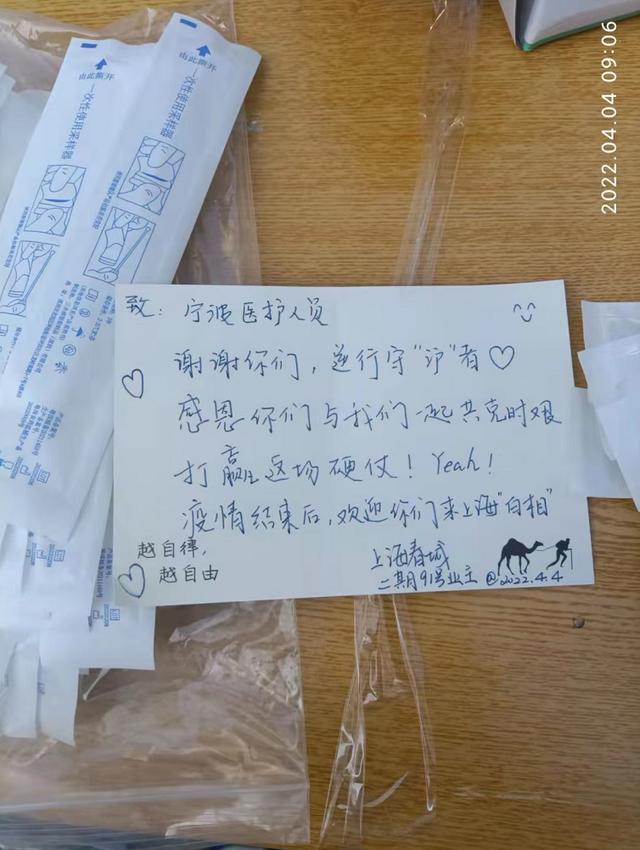 2022.04.04 09:06
由此撕开
一次性使用采样器
由此撕开
一次性使用采样器
致：宁波医护人员
谢谢你们，逆行守"沪"者♡
感恩你们与我们一起共克时艰
打赢这场硬仗！Yeah！
疫情结束后，欢迎你们来上海"白相"
越自律，
越自由
上海春城
二期91号业主 @2022.4.4